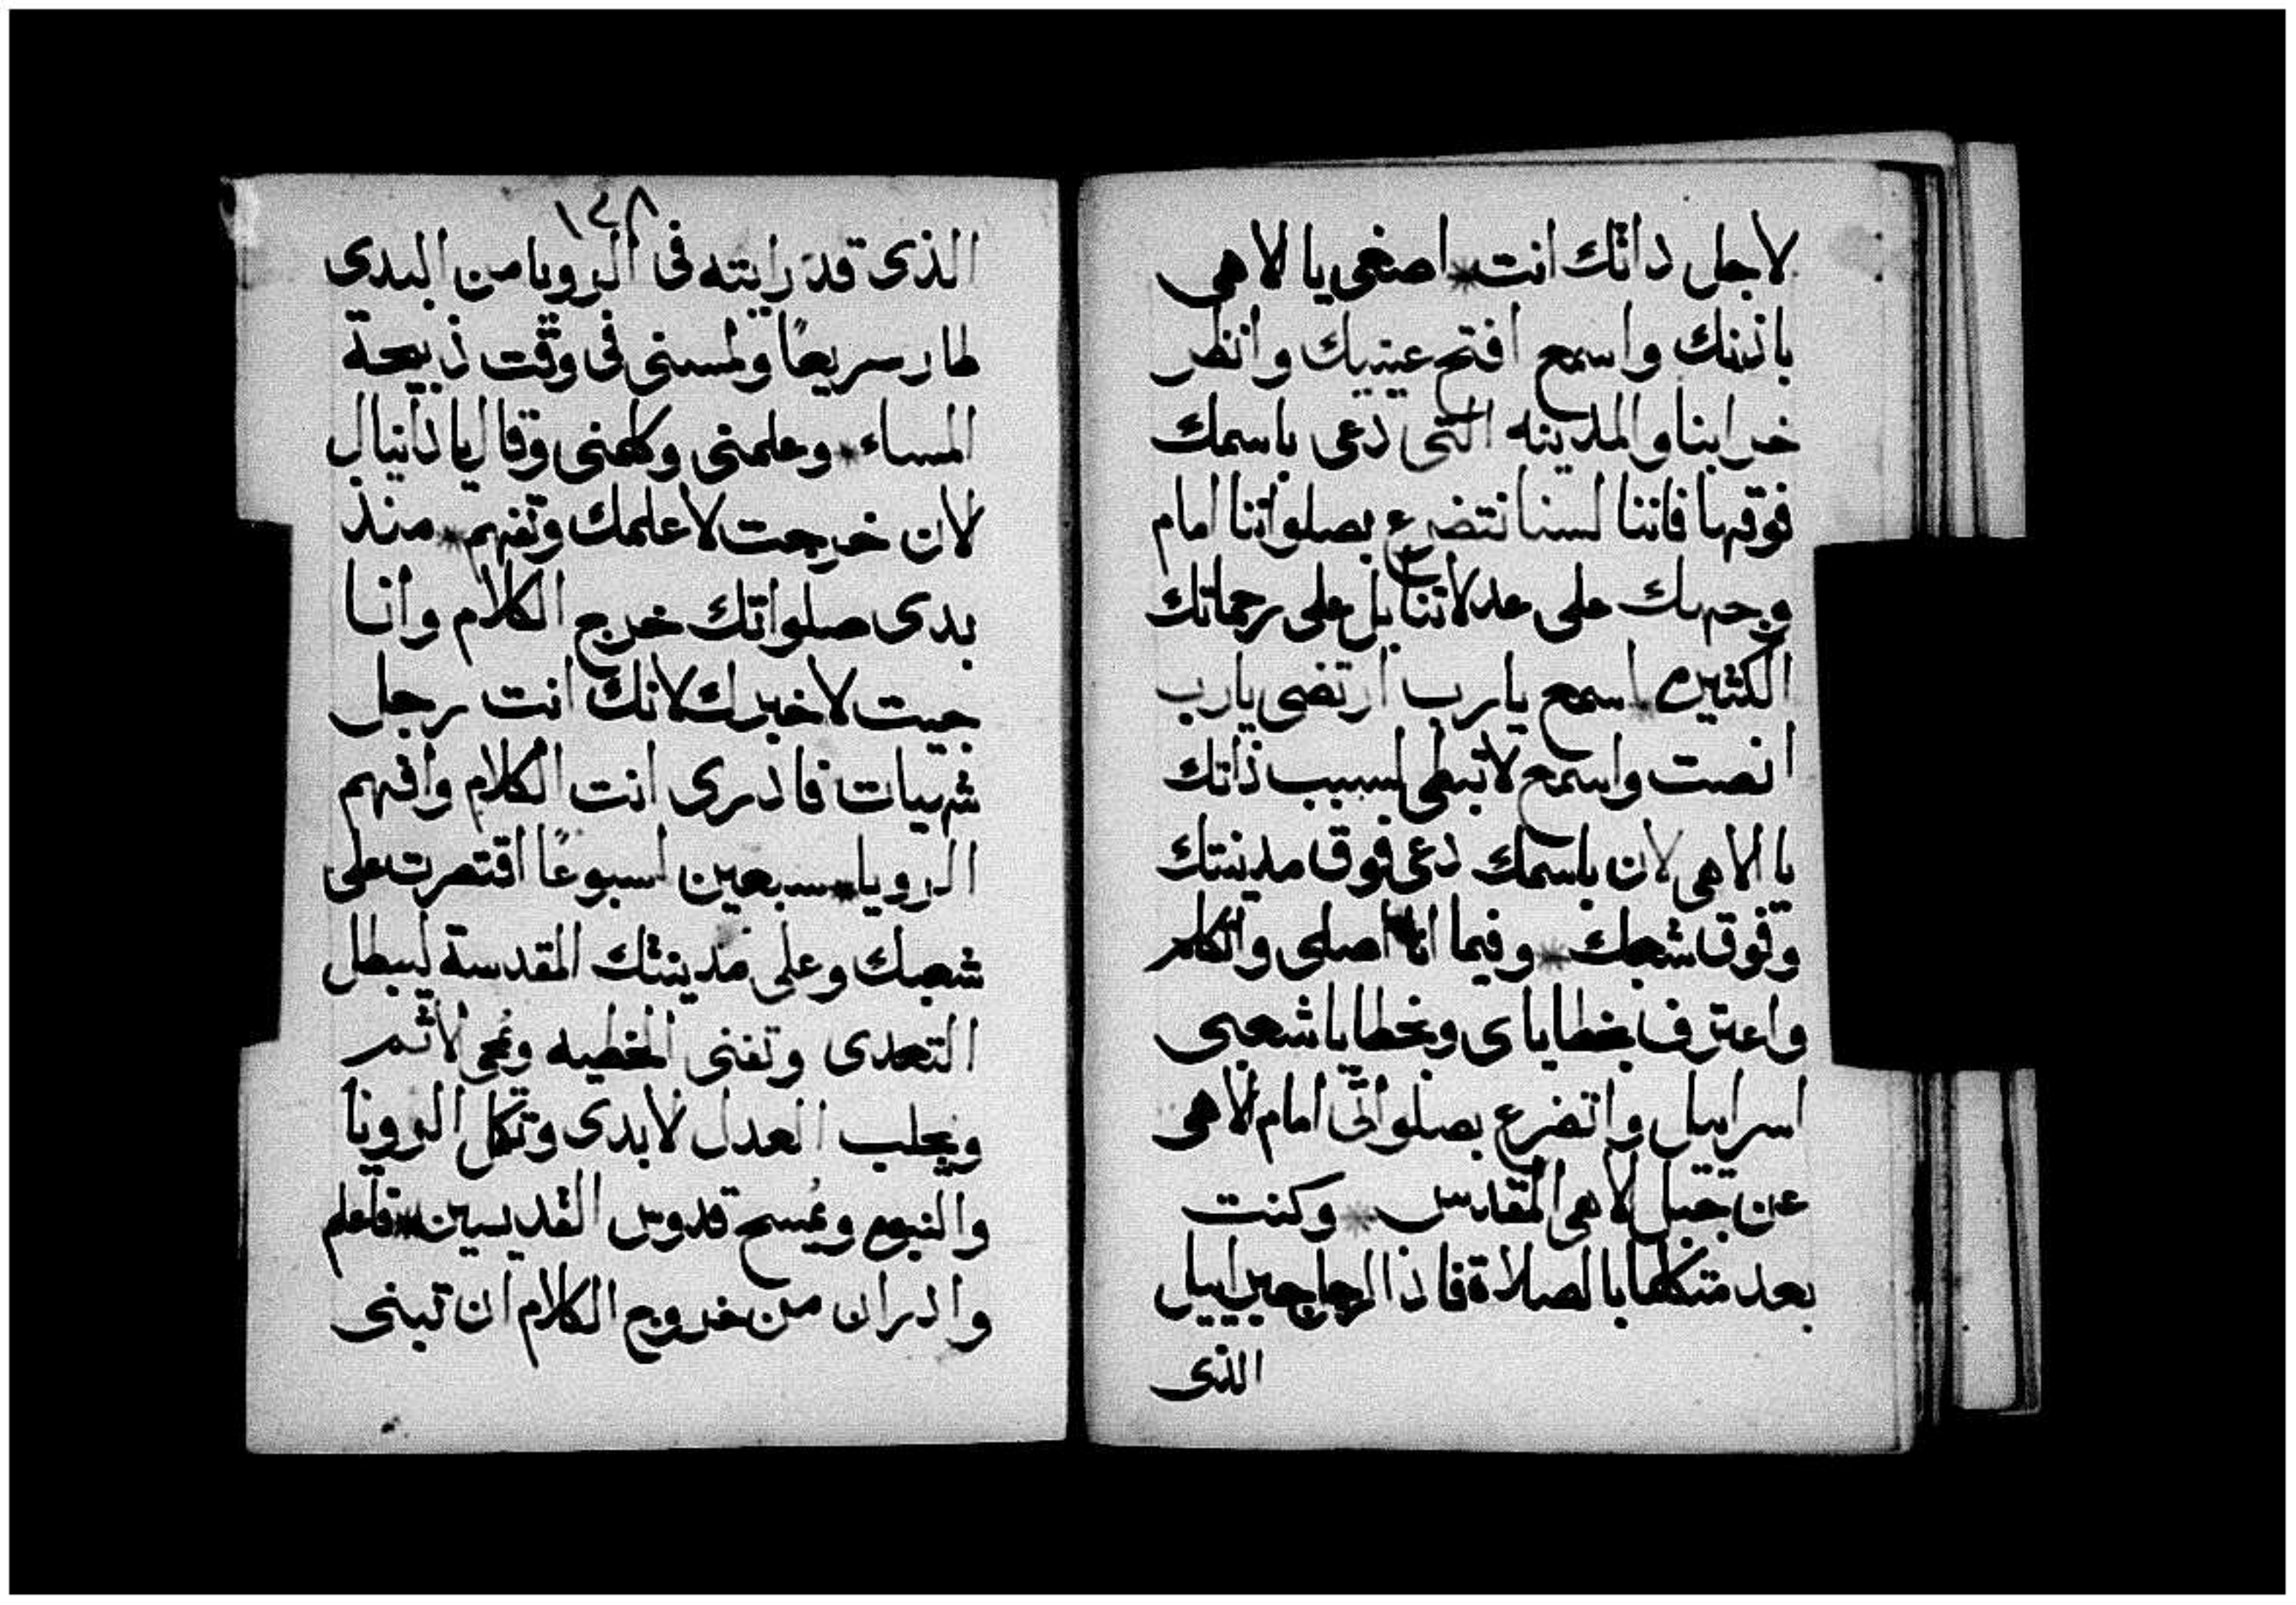 لاجل داتك انت * اصغى يا الاهى
باذنك واسمع افتح عينيك وانظر
خرابنا والمدينه التى دعى باسمك
فوقها فاننا لسنا نتضرع بصلواتنا امام
وجهك على عدلاتنا بل على رحماتك
الكثيره * اسمع يارب ارتضى يارب
انصت واسمع لا تبطى لسبب ذاتك
يا الاهى لان باسمك دعى فوق مدينتك
وفوق شعبك * وفيما انا اصلى واتكلم
واعترف بخطاياى وبخطايا شعبى
اسراييل واتضرع بصلواتى امام الاهى
عن جبل الاهى المقدس * وكنت
بعد متكلما بالصلاة فاذا الرجل جبراييل
الذى
١٤٨
الذى قد رايته فى الرويا من البدى
طار سريعًا ولمسنى فى وقت ذبيحة
المساء * وعلمنى وكلمنى وقال يا دانيال
لان خرجت لاعلمك وتفهم * منذ
بدى صلواتك خرج الكلام وانا
جيت لاخبرك لانك انت رجل
شهيات فادرى انت الكلام وافهم
الرويا * سبعين اسبوعًا اقتصرت على
شعبك وعلى مدينتك المقدسة ليبطل
التعدى وتفنى الخطيه ويُمحى الاثم
ويجلب العدل الابدى وتكمل الرويا
والنبوه ويُمسح قدوس القديسين * فاعلم
وادر ان من خروج الكلام ان تبنى